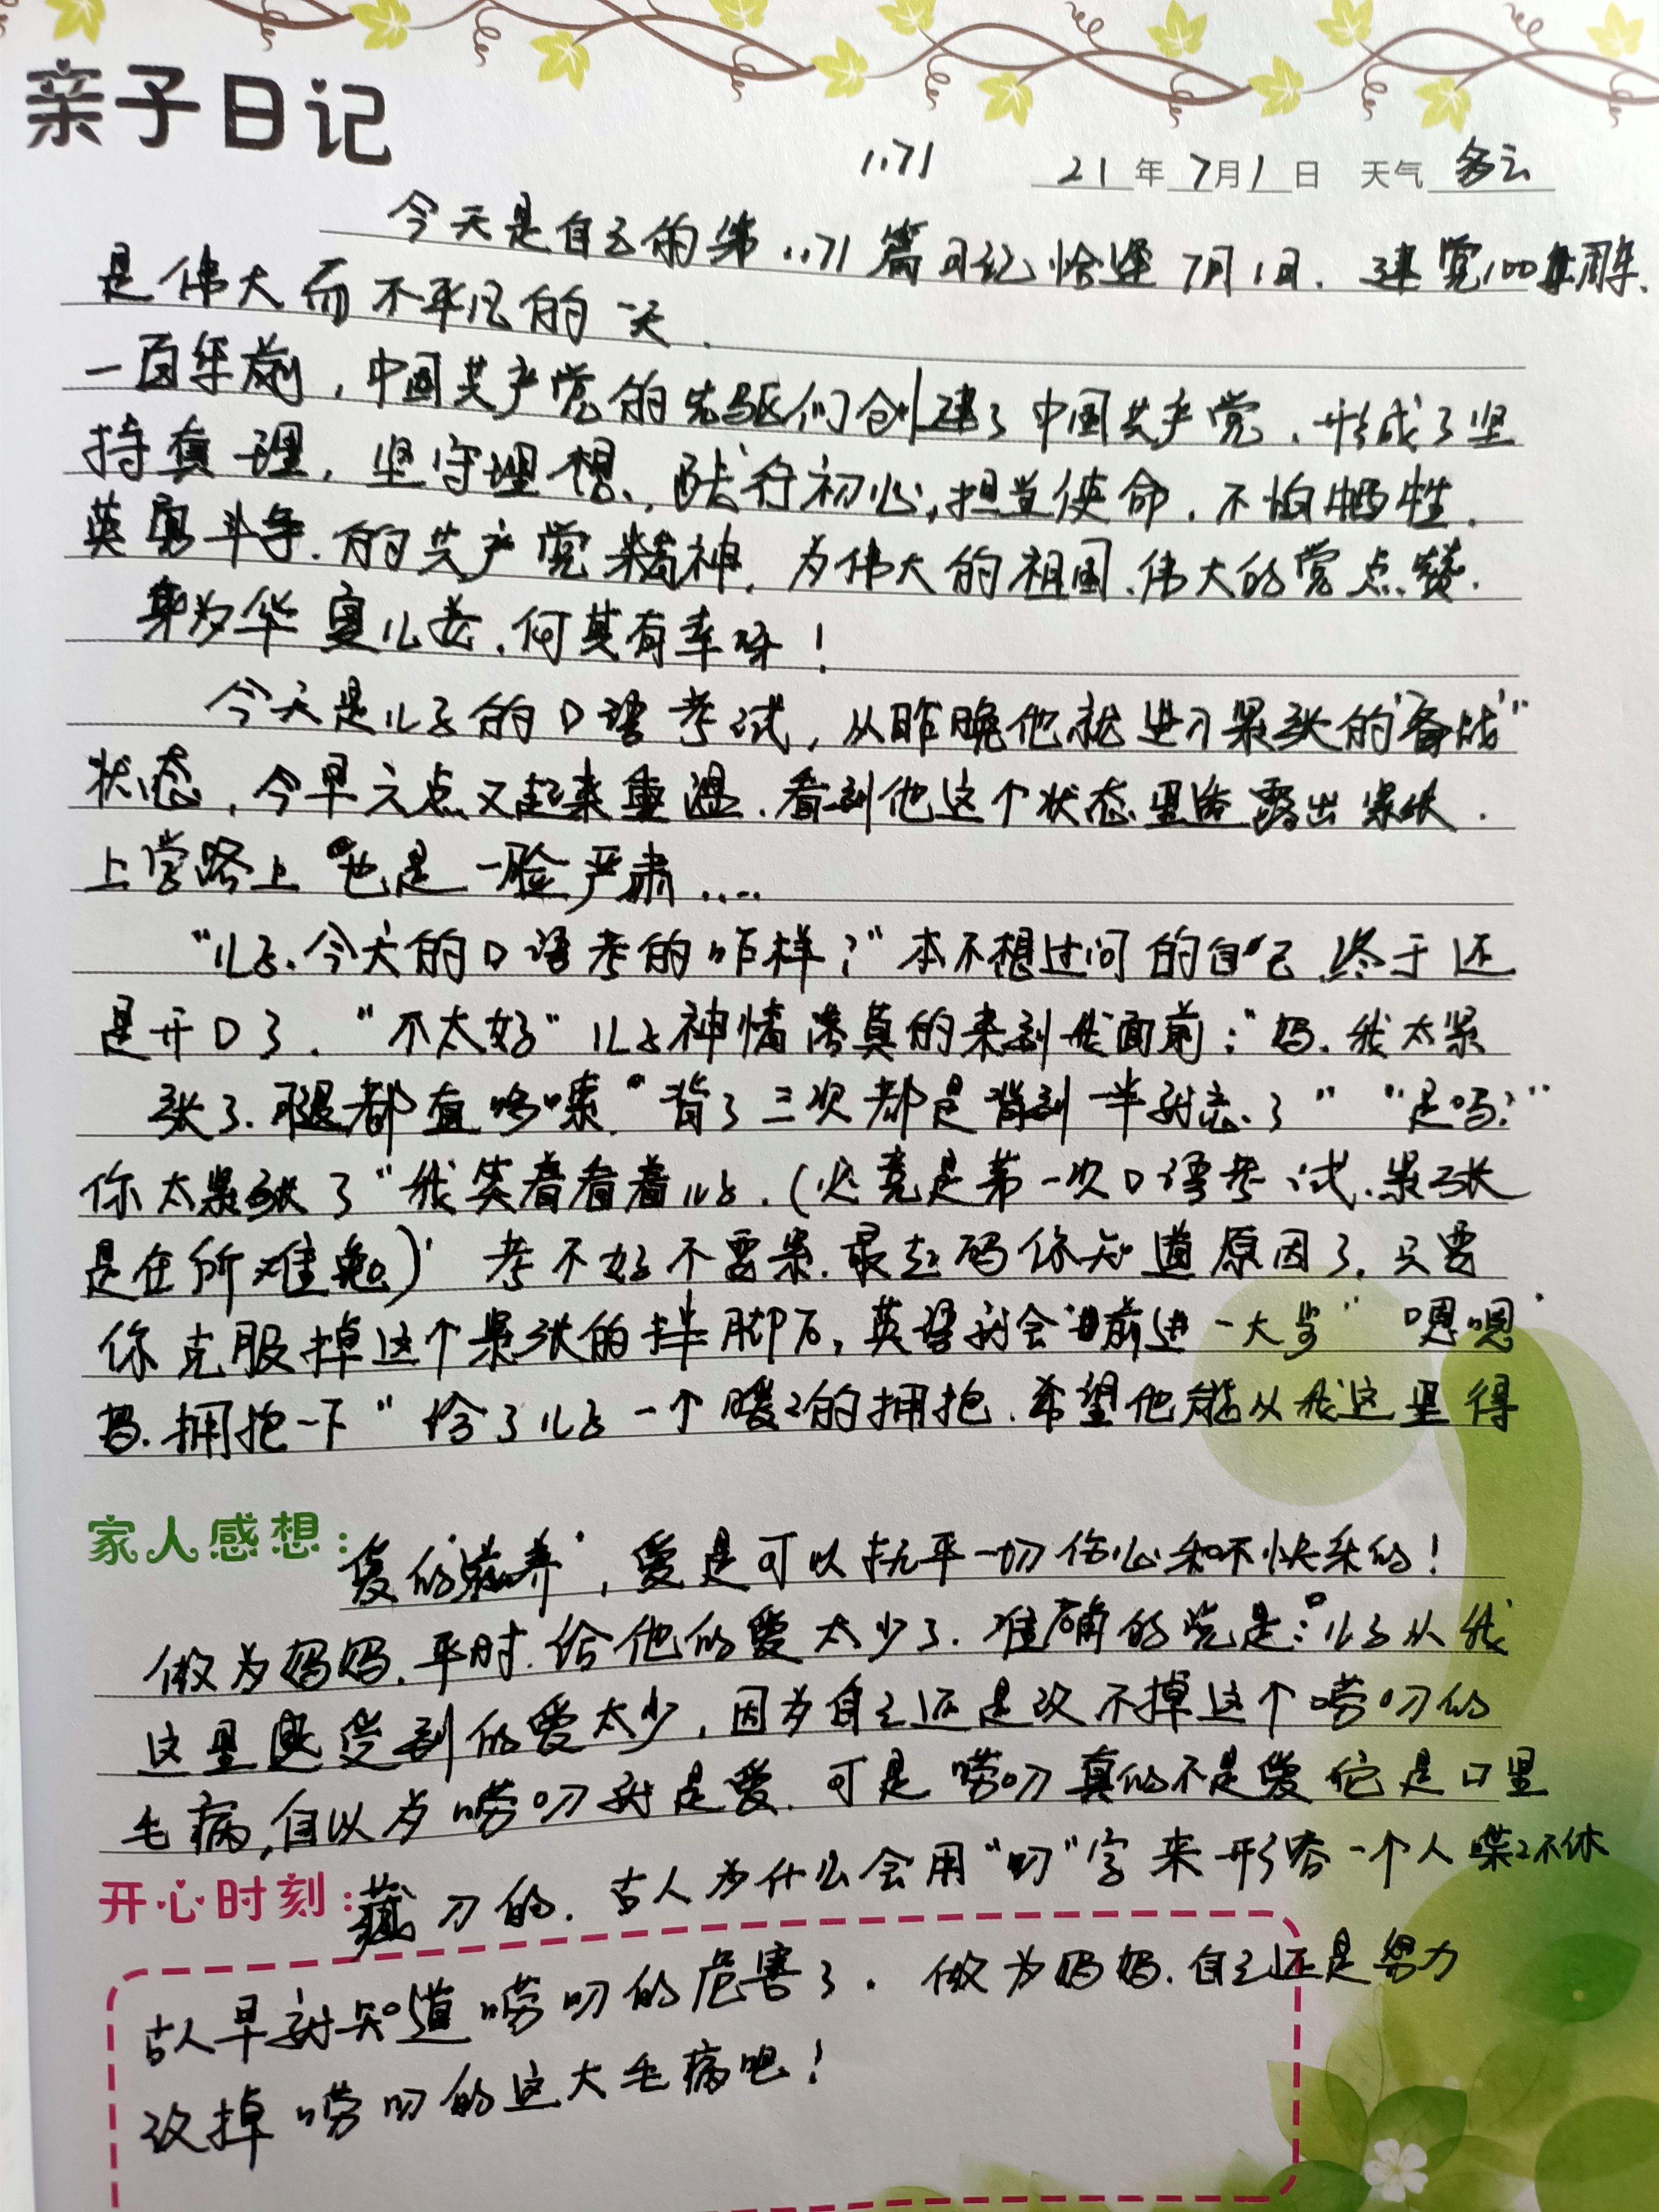 亲子日记
1171 21年7月1日 天气 多云
今天是自己的第1171篇日记恰逢7月1日.建党100年周年.
是伟大而不平凡的一天.
一百年前,中国共产党的先驱们创建了中国共产党,形成了坚
持真理,坚守理想,践行初心,担当使命,不怕牺牲.
英勇斗争.的共产党精神,为伟大的祖国.伟大的党点赞.
身为华夏儿女.何其有幸呀!
今天是儿子的口语考试,从昨晚他就进入紧张的"备战"
状态,今早六点又起来重温.看到他这个状态里透露出紧张.
上学路上也是一脸严肃....
"儿子.今天的口语考的咋样?"本不想过问的自己,终于还
是开口了."不太好"儿子神情认真的来到我面前:"妈.我太紧
张了.腿都直哆嗦."背了三次都是背到一半就忘了" "是吗?"
你太紧张了"我笑着看着儿子.(必竟是第一次口语考试.紧张
是在所难免)"考不好不要紧.最起码你知道原因了,只要
你克服掉这个紧张的拌脚石,英语就会前进一大步" "嗯嗯"
妈.拥抱一下"给了儿子一个暖2的拥抱.希望他能从我这里得
家人感想:爱的"滋养",爱是可以抚平一切伤心和不快乐的!
做为妈妈.平时.给他的爱太少了.准确的说是:儿子从我
这里感受到的爱太少,因为自己还是改不掉这个唠叨的
毛病,自以为唠叨就是爱.可是唠叨真的不是爱它是口里
开心时刻:藏刀的.古人为什么会用"叨"字来形容一个人喋2不休
古人早就知道唠叨的危害了.做为妈妈.自己还是努力
改掉唠叨的这大毛病吧!